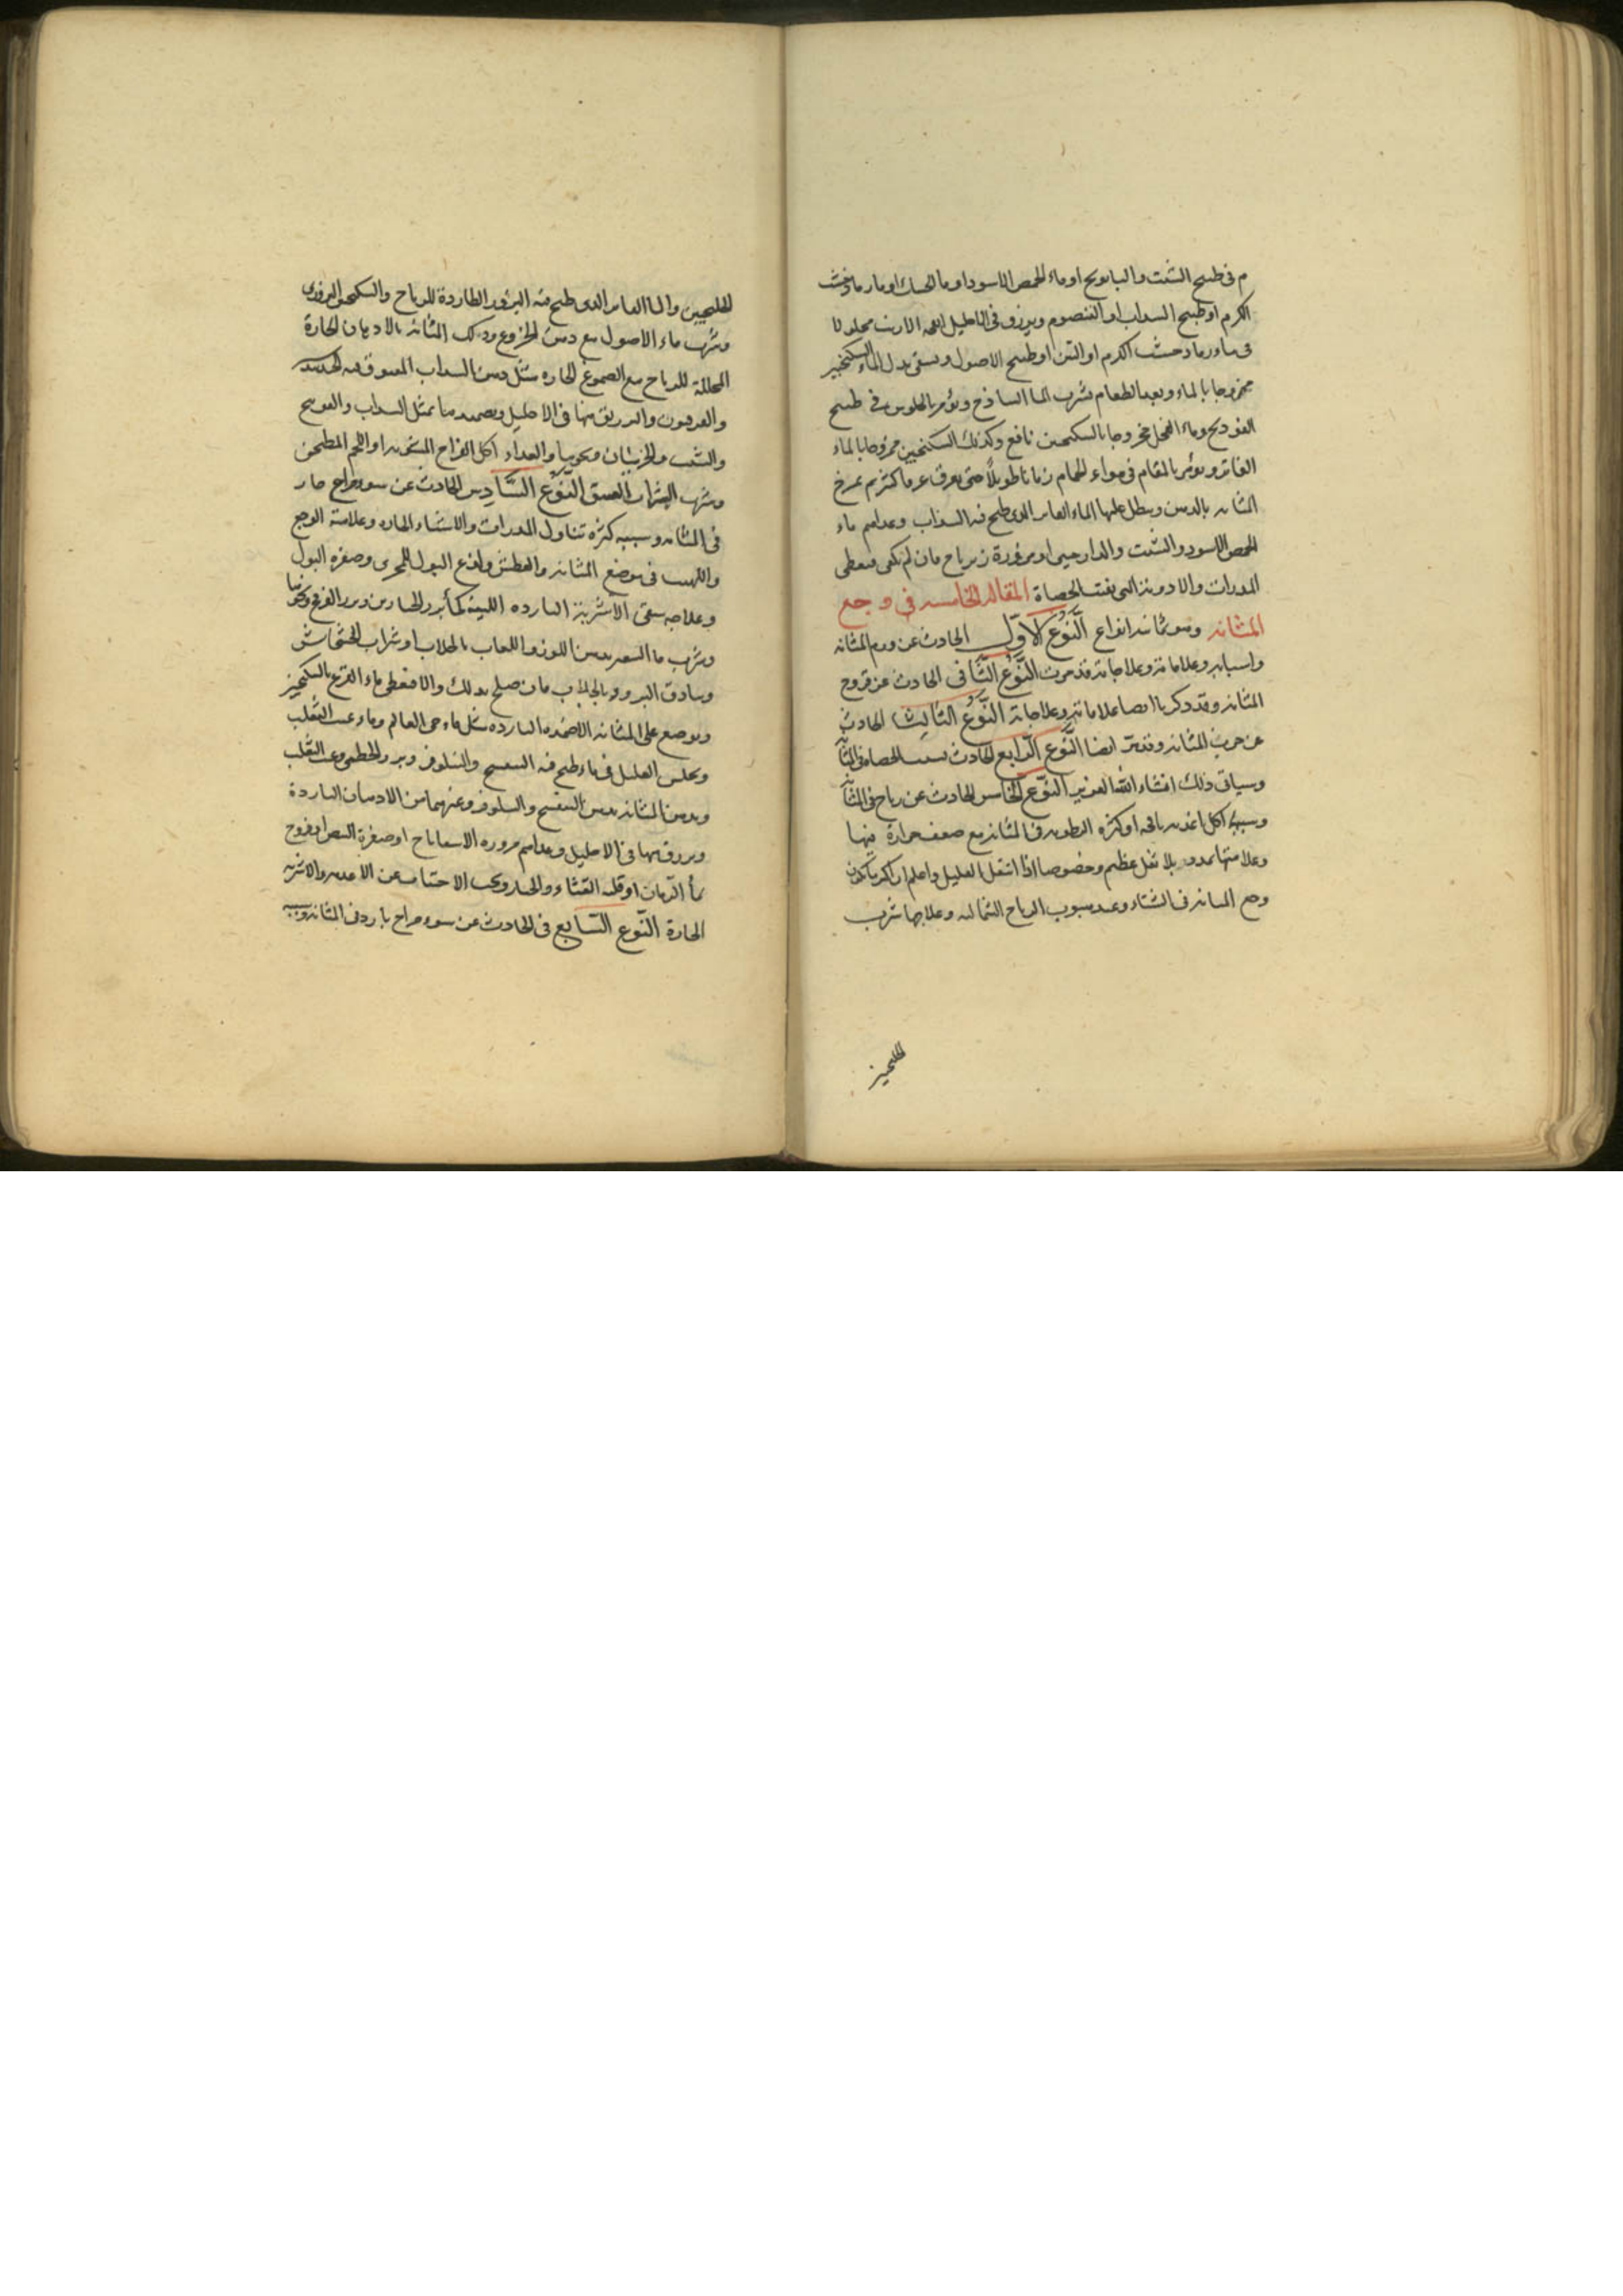 م فى طبيخ الشبت والبابونج او ماء الحمص الاسود او ما الحسك او ما رماد خشب
الكرم او طبيخ السداب او القيصوم ويزرق فى الاحليل محلولا
فى ماء رماد خشب الكرم او التين او طبيخ الاصول ويسقى بدل الماء السكنجبين
ممزوجا بالماء وبعد الطعام يشرب الما الساذج ويؤمر بالجلوس فى طبيخ
الفودنج وماء الفجل ممزوجا بالسكنجبين نافع وكذلك السكنجبين ممزوجا بالماء
الفاتر ويؤمر بالمقام فى هواء الحمام زمانا طويلا حتى يعرق عرقا كثيرا ثم يمرخ
المثانه بالدهن ويبطل عليها الماء الفاتر الذى طبخ فيه السداب وغداهم ماء
الحمص الاسود والشبت والدارصينى او مزورة زيرباج فان لم يكفى فيعطى
المدرات والادوية التى تفتت الحصاة المقاله الخامسه فى وجع
المثانه وهو ثمانيه انواع النوع الاول الحادث عن ورم المثانه
واسبابه وعلاماته وعلاجاته قد مرت النوع الثانى الحادث عن قروح
المثانه وقد ذكرنا ايضا علاماته وعلاجاته النوع الثالث الحادث
عن جرب المثانه وقد مر ايضا النوع الرابع الحادث بسبب الحصاه فى المثانه
وسياتى ذلك انشاء الله العزيز النوع الخامس الحادث عن رياح فى المثانه
وسببها اكل اغذيه نافخه او كثرة الرطوبه فى المثانه مع ضعف حرارة فيها
وعلامتها تمدد بلا ثقل عظيم وخصوصا اذا انتقل العليل واعلم ان اكثر ما يكون
وجع المثانه فى الشتاء وعند هبوب الرياح الشماليه وعلاجها شرب
الخلنجبين
الخلنجبين والما الفاتر الذى طبخ فيه البزور الطاردة للرياح والسكنجبين البزورى
وشرب ماء الاصول مع دهن الخروع ودلك المثانه بالادهان الحارة
المحللة للرياح مع الصموغ الحاره مثل دهن السداب
والفربيون والزرق منها فى الاحليل وتضميدها بمثل السداب والفودنج
والشبت ونحوها والغداء اكل الفراخ او اللحم المطجن
وشرب الشراب العتيق النوع السادس الحادث عن سوء مزاج حار
فى المثانه وسببه كثرة تناول المدرات والاشياء الحاره وعلامته الوجع
واللهيب فى موضع المثانه والعطش ولذع البول للمجرى وصفره البول
وعلاجه سقى الاشربة البارده اللينة كماء بزر الخيار وبزر القرع ونحوها
وشرب ما الشعير بدهن اللوز واللعاب بالجلاب او شراب الخشخاش
وبنادق البزور بالجلاب فان صلح بذلك والا فيعطى ماء القرع بالسكنجبين
ويوضع على المثانه الاضمده البارده مثل ماء حى العالم وماء عنب الثعلب
ويجلس العليل فى ماء طبخ فيه البنفسج والنيلوفر وبزر الخطمى وعنب الثعلب
ويدهن المثانه بدهن البنفسج والنيلوفر وغيرهما من الادهان الباردة
ويزرق منها فى الاحليل وغداهم مزوره الاسفاناخ او صفرة البيض او فروج
بماء الرمان او قليه القثاء والخيار ويجب الاجتناب عن الاغذيه والاشربه
الحارة النوع السابع فى الحادث عن سوء مزاج بارد فى المثانه وسببه